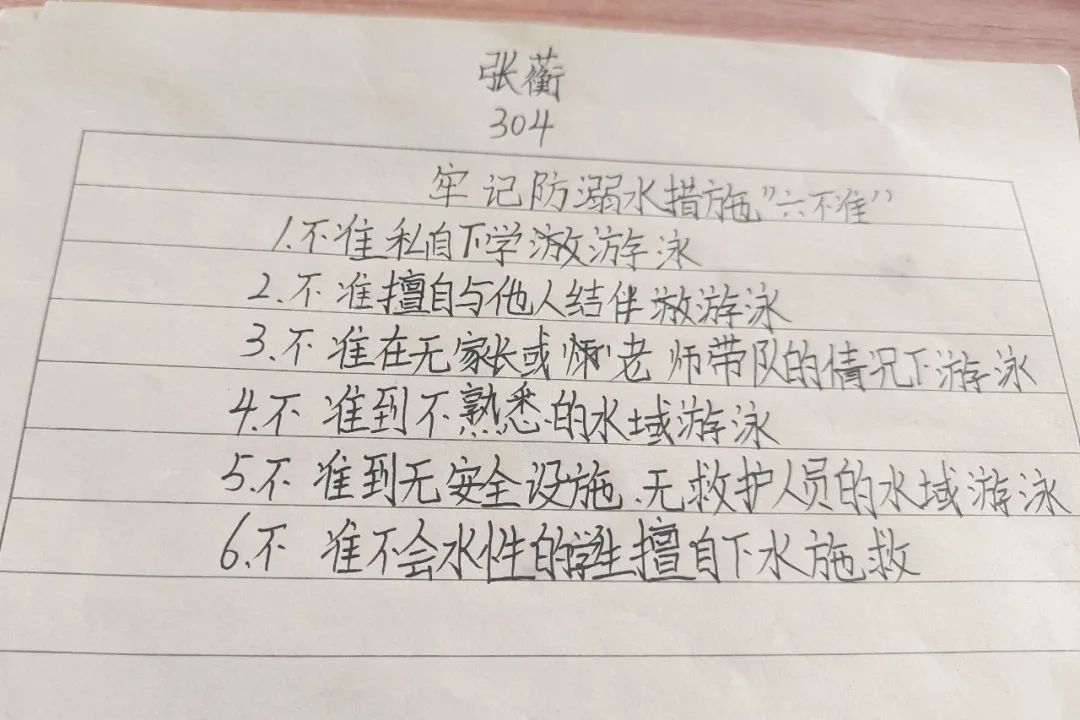 张蘅
304
牢记防溺水措施"六不准"
1.不准私自下学游泳
2.不准擅自与他人结伴游泳
3.不准在无家长或老师带队的情况下游泳
4.不准到不熟悉的水域游泳
5.不准到无安全设施、无救护人员的水域游泳
6.不准不会水性的学生擅自下水施救